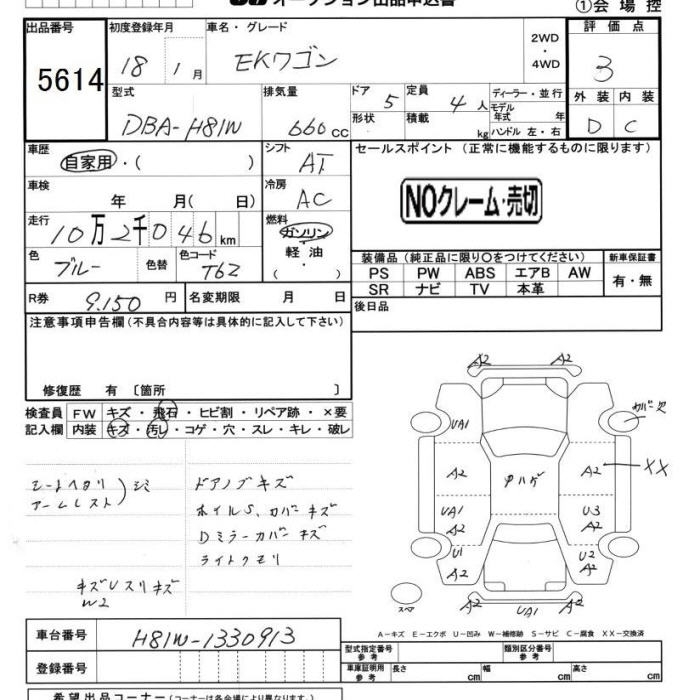 オークション出品申込書
①会場控
出品番号 初度登録年月 車名・グレード 2WD・4WD 評価点
5614 18 1月 EKワゴン 3
型式 排気量 ドア 5 定員 4人 ディーラー・並行
DBA-H81W 660cc 形状 積載 kg モデル年式 年 ハンドル 左・右
外装 内装
D C
車歴 自家用・( ) シフト AT セールスポイント (正常に機能するものに限ります)
車検 年 月( 日) 冷房 AC
NOクレーム・売切
走行 10万2千046km 燃料 ガソリン・軽油 ( )
色 ブルー 色替 色コード T62
装備品 (純正品に限り〇をつけてください) 新車保証書
PS PW ABS エアB AW 有・無
SR ナビ TV 本革
R券 9.150円 名変期限 月 日 後日品
注意事項申告欄(不具合内容等は具体的に記入して下さい)
修復歴 有 〔箇所 〕
検査員 FW キズ・飛石・ヒビ割・リペア跡・×要
記入欄 内装 キズ・汚レ・コゲ・穴・スレ・キレ・破レ
アームレスト シミ
ドアノブキズ
ホイルS、カバーキズ
Dミラーカバーキズ
ライトクモリ
キズUスリキズ
W2
A2 A2
UA1 カバー欠
A2 ハゲ A2 XX
UA1 U3
A2 A2
U1 U2
A2 A2
スペア A2 UA1 A2
A-キズ E-エクボ U-凹み W-補修跡 S-サビ C-腐食 XX-交換済
車台番号 H81W-1330913
型式指定番号 類別区分番号
登録番号
車庫証明用参考 長さ cm 幅 cm 高さ cm
希望出品コーナー(コーナーは各会場により異なります。)